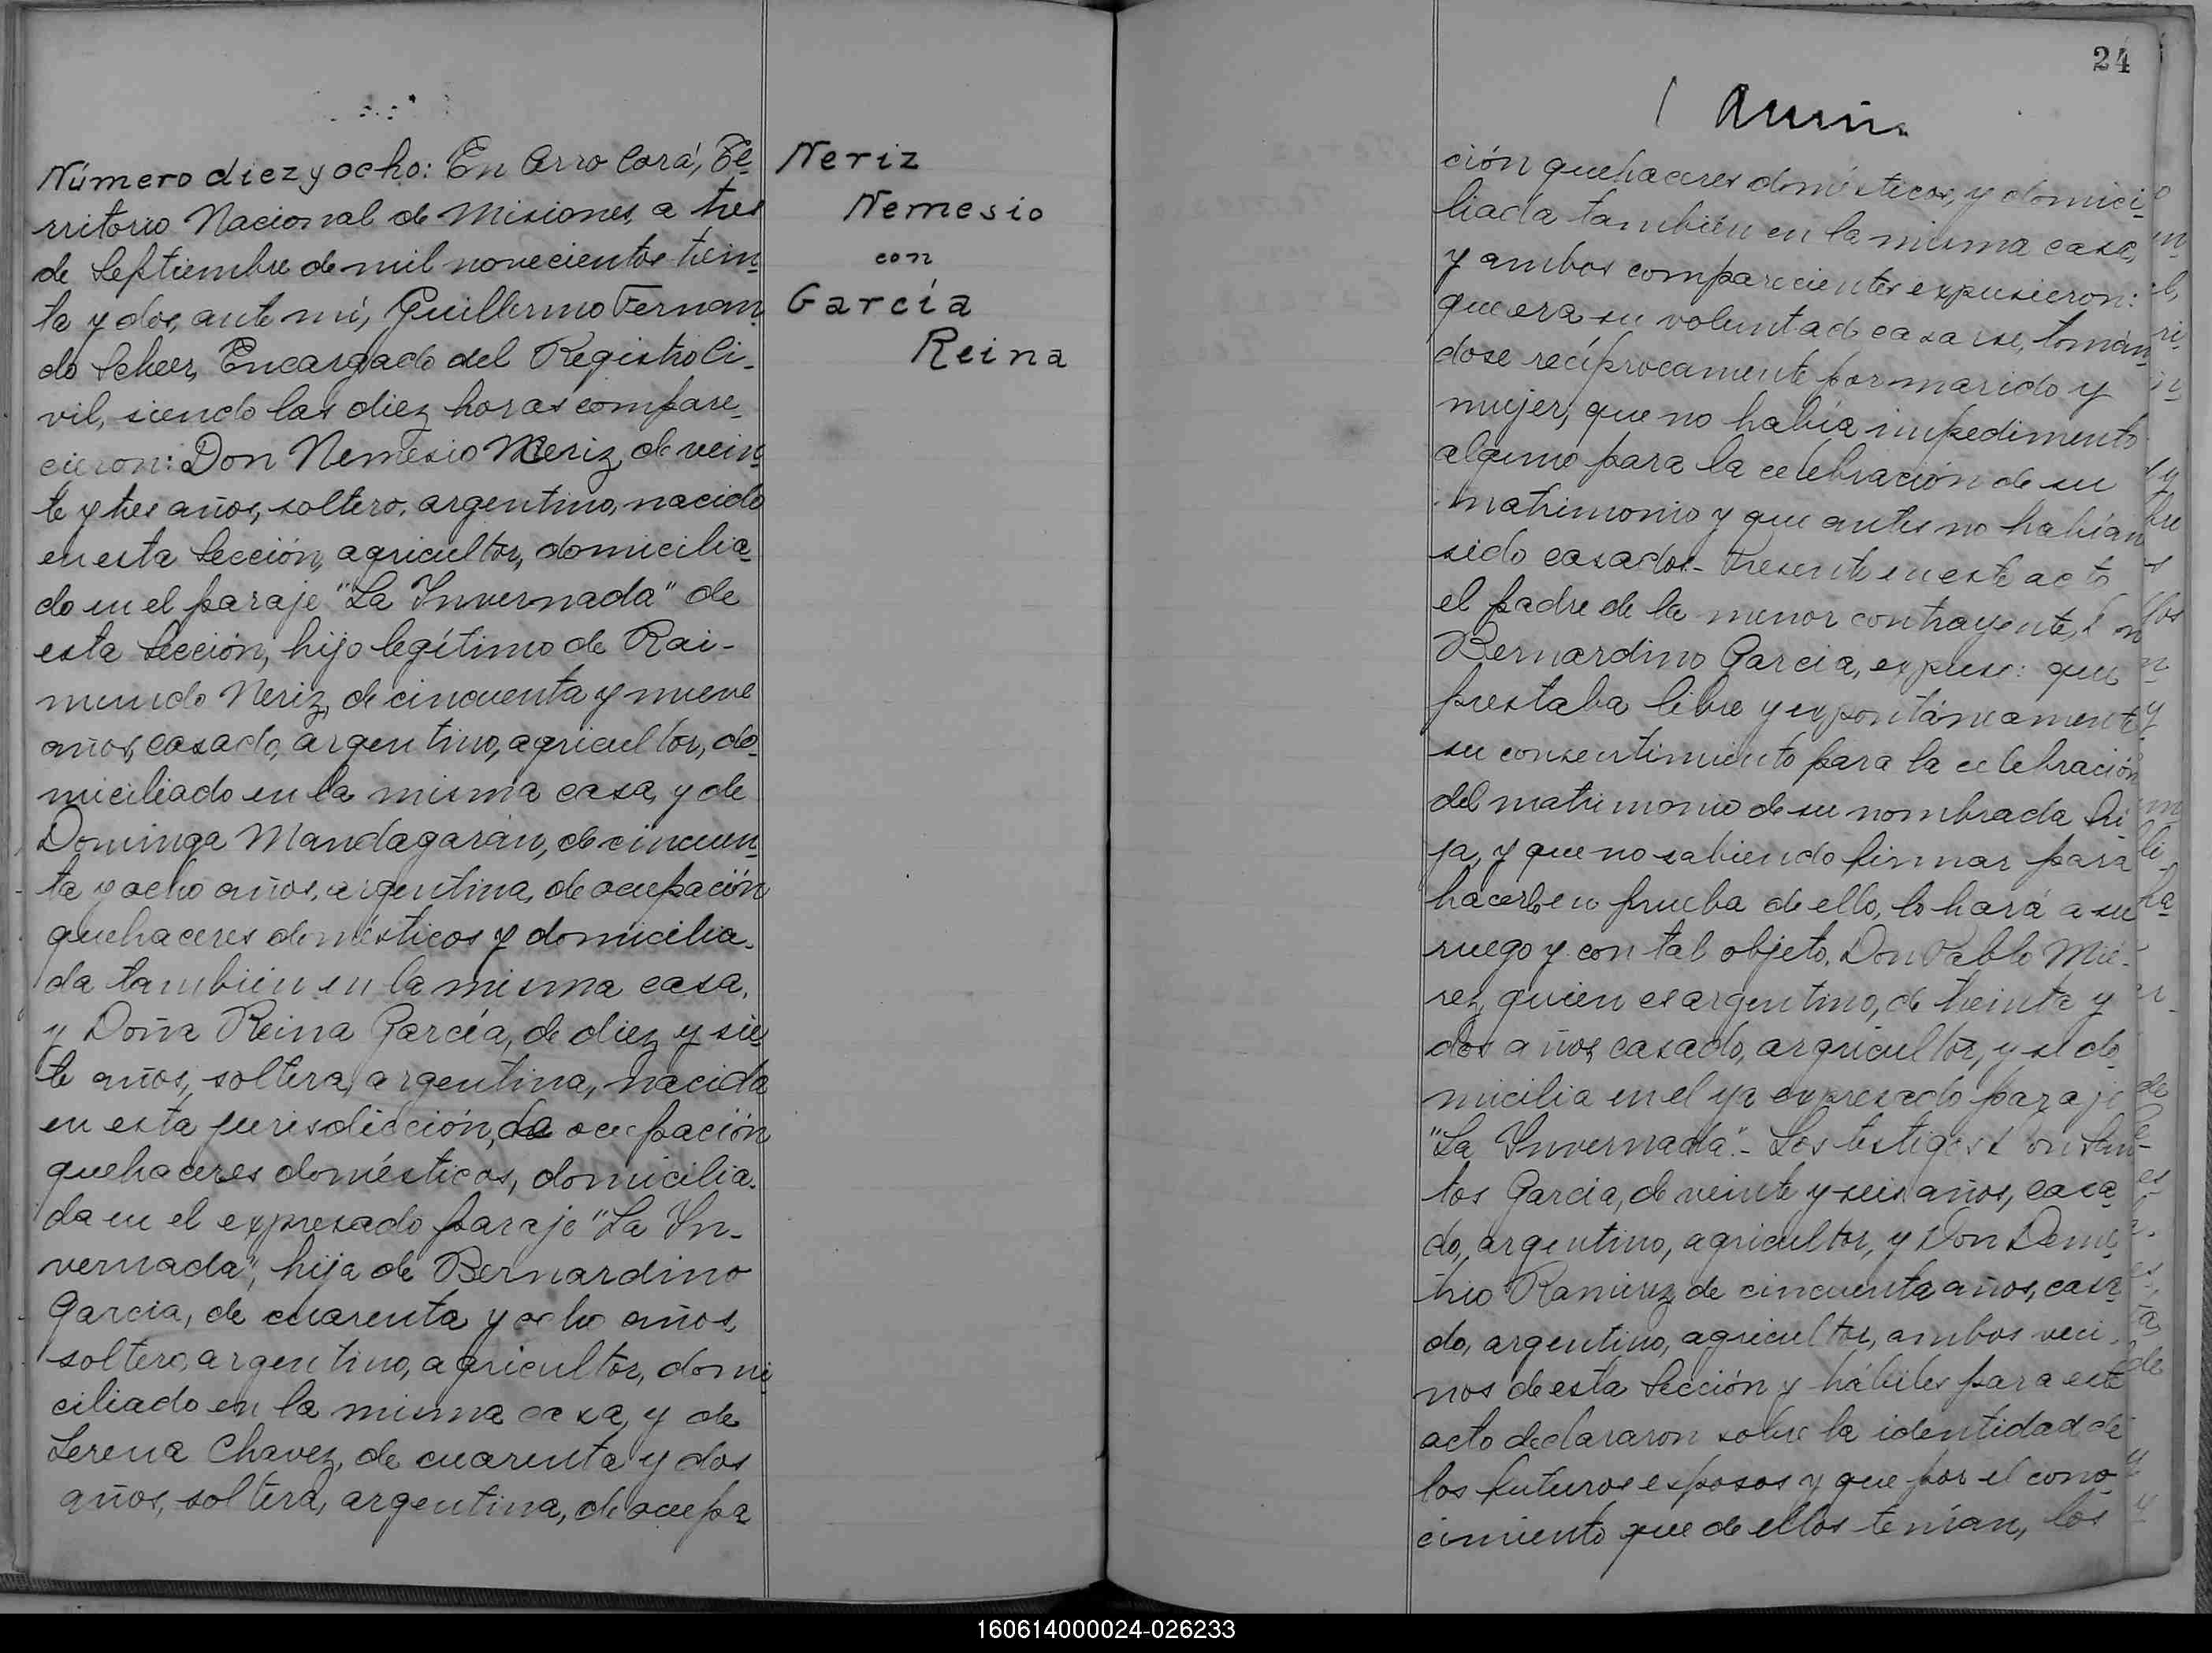 Número diez y ocho: En Cerro Corá, Te-
rritorio Nacional de Misiones, a tres
de Septiembre de mil novecientos trein-
ta y dos, ante mí, Guillermo Fernan-
do Scheer, Encargado del Registro Ci-
vil, siendo las diez horas compare-
cieron: Don Nemesio Neriz, de vein-
te y tres años, soltero, argentino, nacido
en esta Sección, agricultor, domicilia-
do en el paraje "La Invernada" de
esta Sección, hijo legítimo de Rai-
mundo Neriz, de cincuenta y nueve
años, casado, argentino, agricultor, do-
miciliado en la misma casa, y de
Dominga Mandagarán, de cincuen-
ta y ocho años, argentina, de ocupación
quehaceres domésticos y domicilia-
da también en la misma casa,
y Doña Reina García, de diez y sie-
te años, soltera, argentina, nacida
en esta jurisdicción, de ocupación
quehaceres domésticos, domicilia-
da en el expresado paraje "La In-
vernada", hija de Bernardino
Garcia, de cuarenta y ocho años,
soltero, argentino, agricultor, domi-
ciliado en la misma casa, y de
Serena Chavez, de cuarenta y dos
años, soltera, argentina, de ocupa
Neriz
Nemesio
con
García
Reina
24
ción quehaceres domésticos, y domici-
liada también en la misma casa,
y ambos comparecientes expusieron:
que era su voluntad casarse, tomán-
dose recíprocamente por marido y
mujer, que no había impedimento
alguno para la celebración de su
matrimonio y que antes no habían
sido casados.- Presente en este acto
el padre de la menor contrayente, Don
Bernardino Garcia, expuso: que
prestaba libre y expontáneamente
su consentimiento para la celebración
del matrimonio de su nombrada hi-
ja, y que no sabiendo firmar para
hacerlo en prueba de ello, lo hará a su
ruego y con tal objeto, Don Pablo
quien es argentino, de treinta y
dos años, casado, argricultor, y se do-
micilia en el ya expresado paraje
"La Invernada".- Los testigos Don San-
tos Garcia, de veinte y seis años, casa-
do, argentino, agricultor, y Don Deme-
trio Ramirez, de cincuenta años, casa-
do, argentino, agricultor, ambos veci-
nos de esta Sección y hábiles para este
acto declararon sobre la identidad de
los futuros esposos y que por el cono-
cimiento que de ellos tenían, los
160614000024-026233